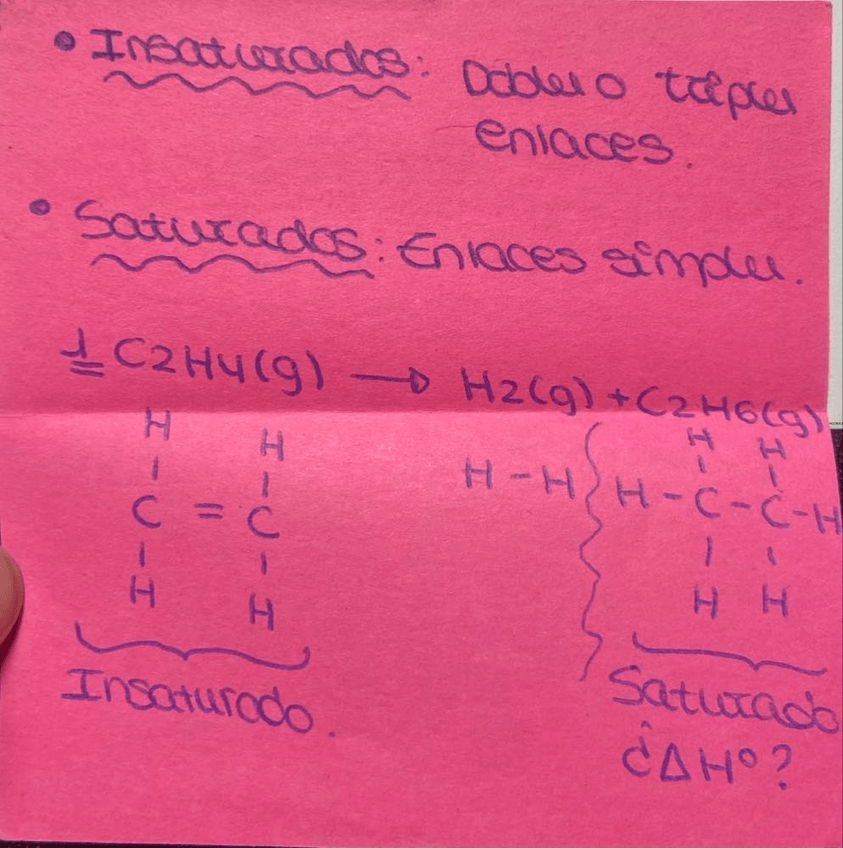 • Insaturados: Dobles o triples
enlaces.
• Saturados: Enlaces simples.
1 C2H4(g) → H2(g) + C2H6(g)
H H H H
C = C H-H H-C-C-H
H H H H
Insaturado. Saturado
¿ΔHº?